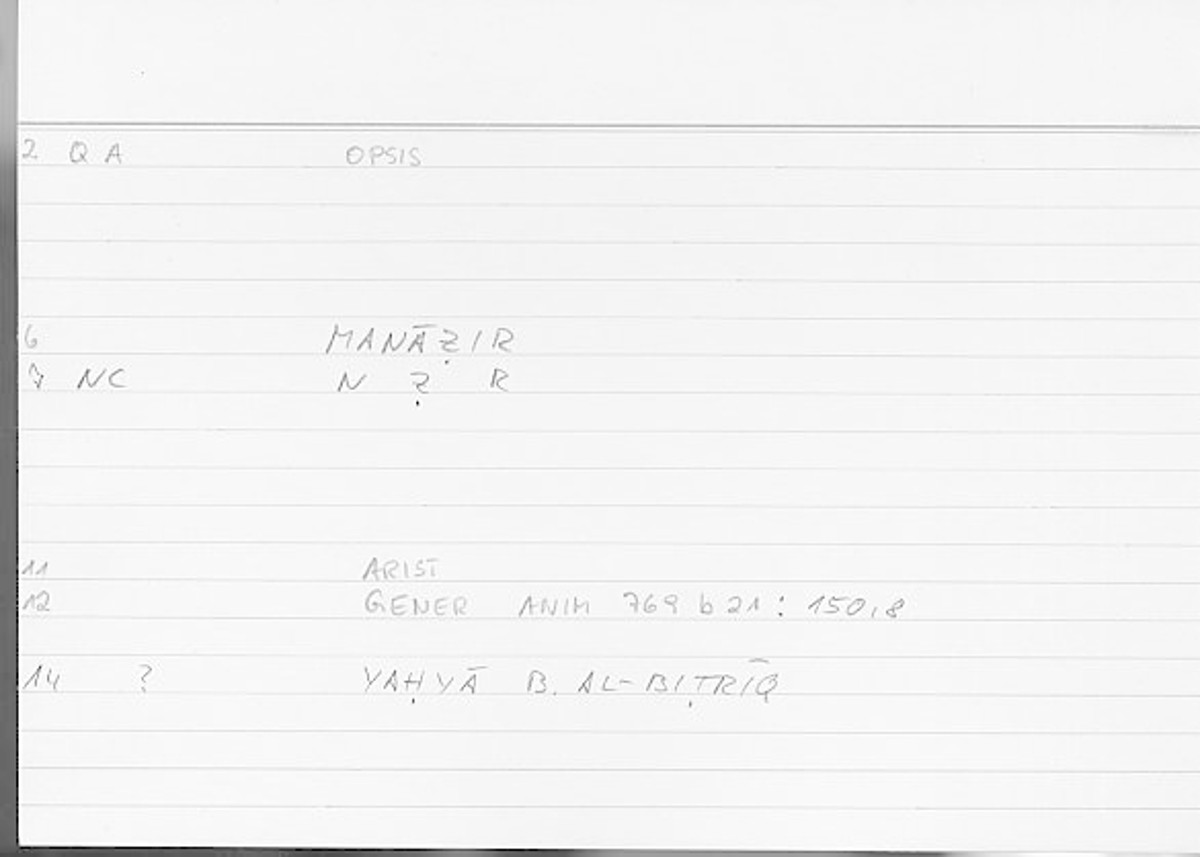 2 QA OPSIS
6 MANĀẒIR
7 NC N Ẓ R
11 ARIST
12 GENER ANIM 769 b 21 : 150,8
14 ? YAḤYĀ B. AL-BIṬRĪQ